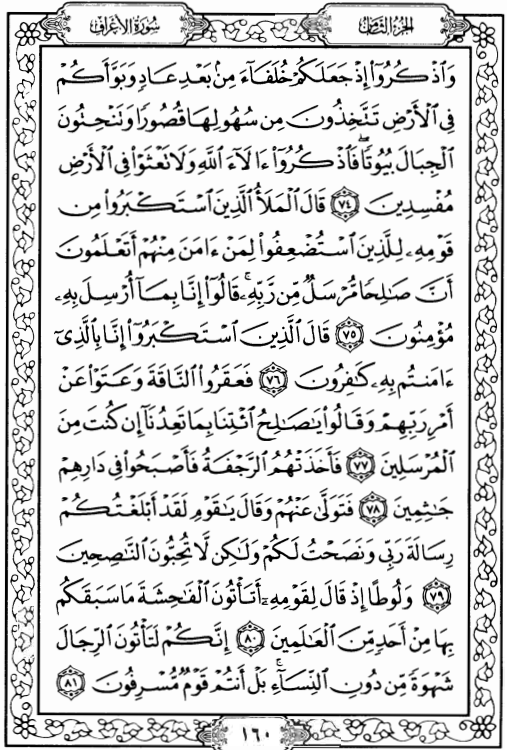 سُورَةُ الأَعْرَافِ
الجُزْءُ الثَّامِنُ
وَاذْكُرُوا إِذْ جَعَلَكُمْ خُلَفَاءَ مِنْ بَعْدِ عَادٍ وَبَوَّأَكُمْ
فِي الْأَرْضِ تَتَّخِذُونَ مِن سُهُولِهَا قُصُورًا وَتَنْحِتُونَ
الْجِبَالَ بُيُوتًا ۖ فَاذْكُرُوا ءَالَاءَ اللَّهِ وَلَا تَعْثَوْا فِي الْأَرْضِ
مُفْسِدِينَ ٧٤ قَالَ الْمَلَأُ الَّذِينَ اسْتَكْبَرُوا مِن
قَوْمِهِ لِلَّذِينَ اسْتُضْعِفُوا لِمَنْ ءَامَنَ مِنْهُمْ أَتَعْلَمُونَ
أَنَّ صَٰلِحًا مُّرْسَلٌ مِّن رَّبِّهِ ۚ قَالُوا إِنَّا بِمَا أُرْسِلَ بِهِ
مُؤْمِنُونَ ٧٥ قَالَ الَّذِينَ اسْتَكْبَرُوا إِنَّا بِالَّذِي
ءَامَنتُم بِهِ كَٰفِرُونَ ٧٦ فَعَقَرُوا النَّاقَةَ وَعَتَوْا عَنْ
أَمْرِ رَبِّهِمْ وَقَالُوا يَٰصَٰلِحُ ائْتِنَا بِمَا تَعِدُنَا إِن كُنتَ مِنَ
الْمُرْسَلِينَ ٧٧ فَأَخَذَتْهُمُ الرَّجْفَةُ فَأَصْبَحُوا فِي دَارِهِمْ
جَٰثِمِينَ ٧٨ فَتَوَلَّىٰ عَنْهُمْ وَقَالَ يَٰقَوْمِ لَقَدْ أَبْلَغْتُكُمْ
رِسَالَةَ رَبِّي وَنَصَحْتُ لَكُمْ وَلَٰكِن لَّا تُحِبُّونَ النَّٰصِحِينَ
٧٩ وَلُوطًا إِذْ قَالَ لِقَوْمِهِ أَتَأْتُونَ الْفَٰحِشَةَ مَا سَبَقَكُم
بِهَا مِنْ أَحَدٍ مِّنَ الْعَٰلَمِينَ ٨٠ إِنَّكُمْ لَتَأْتُونَ الرِّجَالَ
شَهْوَةً مِّن دُونِ النِّسَاءِ ۚ بَلْ أَنتُمْ قَوْمٌ مُّسْرِفُونَ ٨١
١٦٠